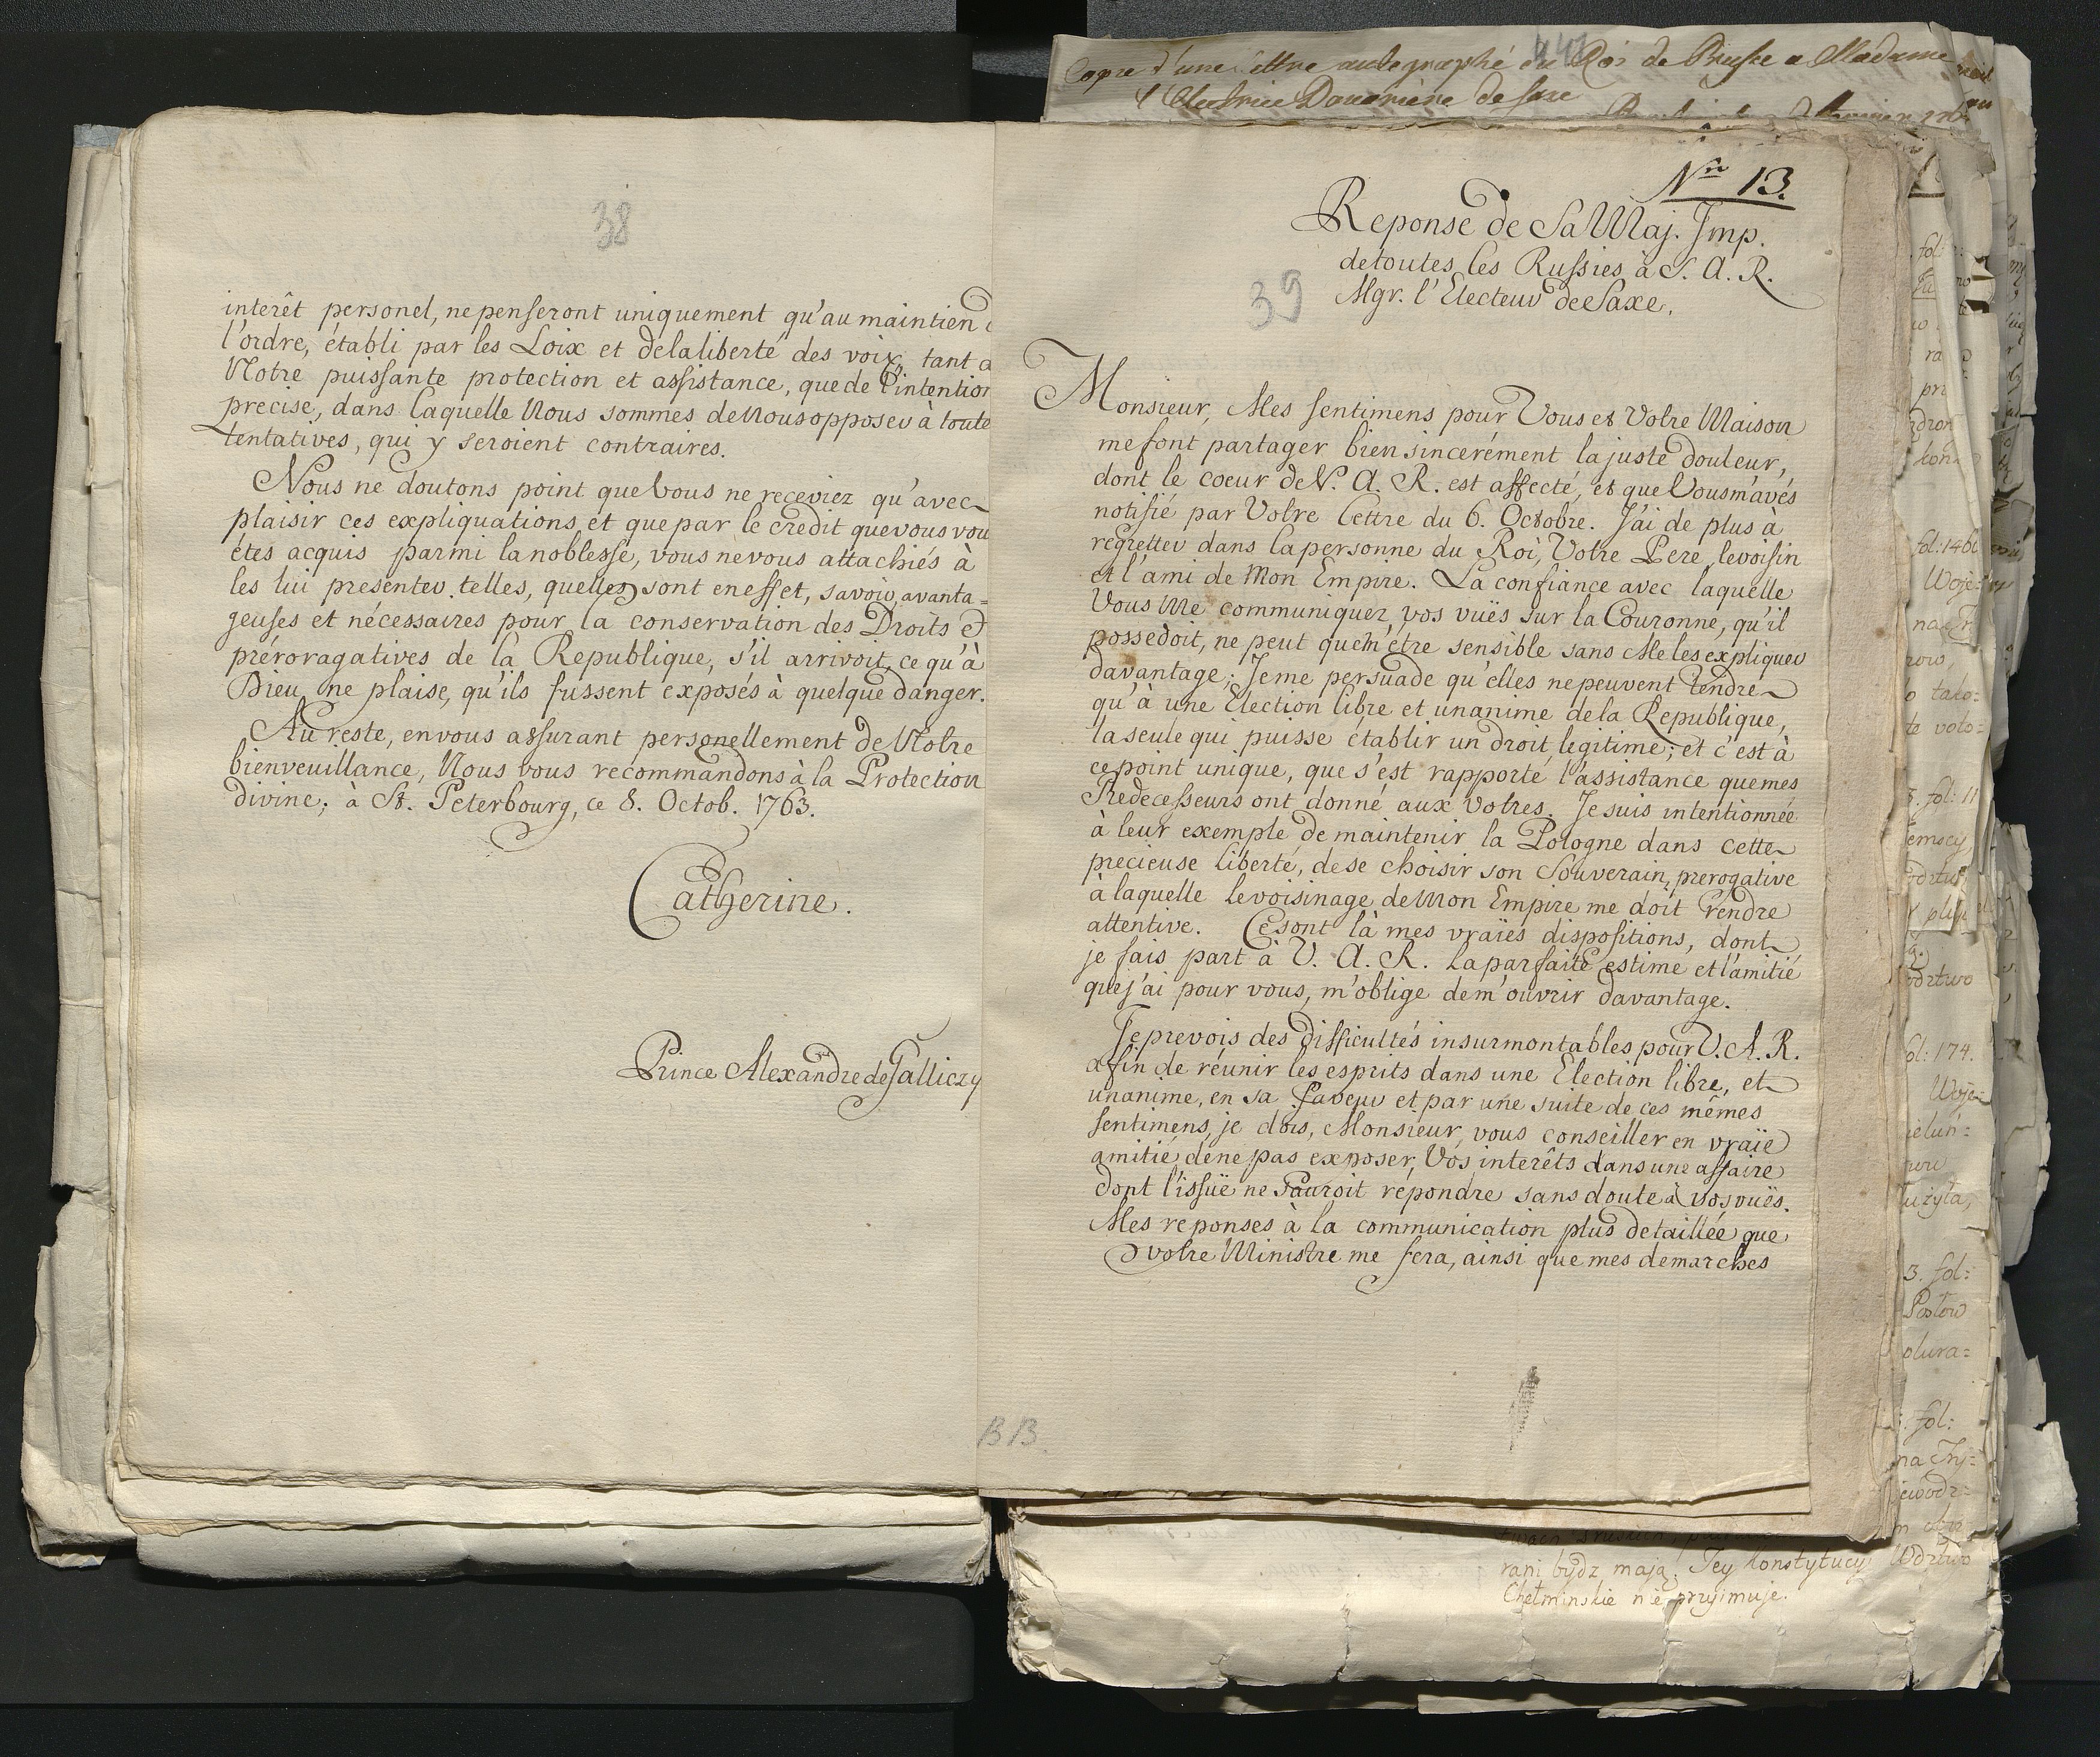 38
interêt personel, ne penseront uniquement qu'au maintien
l'ordre, établi par les Loix et de la liberté des voix, tant
Notre puissante protection et assistance, que de l'intention
precise, dans laquelle Nous sommes de Nous opposer à toute
tentatives, qui y seroient contraires.
Nous ne doutons point que Vous ne receviez qu'avec
plaisir ces expliquations et que par le credit que vous vou
étes acquis parmi la noblesse, vous ne vous attachiés à
les lui presenter telles, quelles sont en effet, savoir avanta=
geuses et nécessaires pour la conservation des Droits et
préroragatives de la Republique, s'il arrivoit, ce qu'à
Dieu ne plaise, qu'ils fussent exposés à quelque danger.
Au reste, en vous assurant personellement de Notre
bienveuillance, Nous vous recommandons à la Protection
divine; à St. Peterbourg, ce 8. Octob. 1763.
Catherine.
Prince Alexandre de Galliczy
Copie d'une lettre autographe du Roi de Prusse a Madame
l'Electrice Douariere de Saxe
Nro 13.
Reponse de Sa Maj. Imp.
de toutes les Russies à S. A. R.
Mgr. l'Electeur de Saxe.
39
Monsieur, Mes sentimens pour Vous et Votre Maison
me font partager bien sincerément la juste douleur,
dont le coeur de V. A. R. est affecté, et que Vous m'avés
notifié par Votre Lettre du 6. Octobre. J'ai de plus à
regretter dans la personne du Roi, Votre Pere, le voisin
et l'ami de Mon Empire. La confiance avec laquelle
Vous Me communiquez, vos vuës sur la Couronne, qu'il
possedoit, ne peut que m'être sensible sans Me les expliquer
davantage; Je me persuade qu'elles ne peuvent tendre
qu'à une Election libre et unanime de la Republique,
la seule qui puisse établir un droit legitime; et c'est à
ce point unique, que s'est rapporté l'assistance que mes
Predecesseurs ont donné aux Votres. Je suis intentionnée
à leur exemple de maintenir la Pologne dans cette
precieuse liberté, de se choisir son Souverain, prerogative
à laquelle le voisinage de Mon Empire me doit rendre
attentive. Ce sont là mes vraïes dispositions, dont
je fais part à V. A. R. La parfaite estime et l'amitié
que j'ai pour vous, m'oblige de m'ouvrir davantage.
Je prevois des difficultés insurmontables pour V. A. R.
afin de réunir les esprits dans une Election libre, et
unanime, en sa faveur et par une suite de ces mêmes
sentimens, je dois, Monsieur, vous conseiller en vraïe
amitié de ne pas exposer, Vos interêts dans une affaire
dont l'issuë ne sauroit répondre sans doute à vos vuës.
Mes reponses à la communication plus detaillée que
votre Ministre me fera, ainsi que mes demarches
BB.
rani bydz mają. Tey Konstytucyi Wdztwo
Chełminskie nie przyimuje.